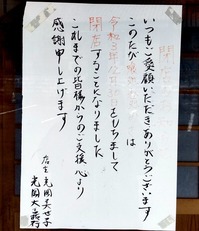 閉店
いつもご愛顧いただきありがとうございます
このたび は
令和3年 をもちまして
閉店することになりました
これまでの皆様からのご支援 心より
感謝申し上げます
店主